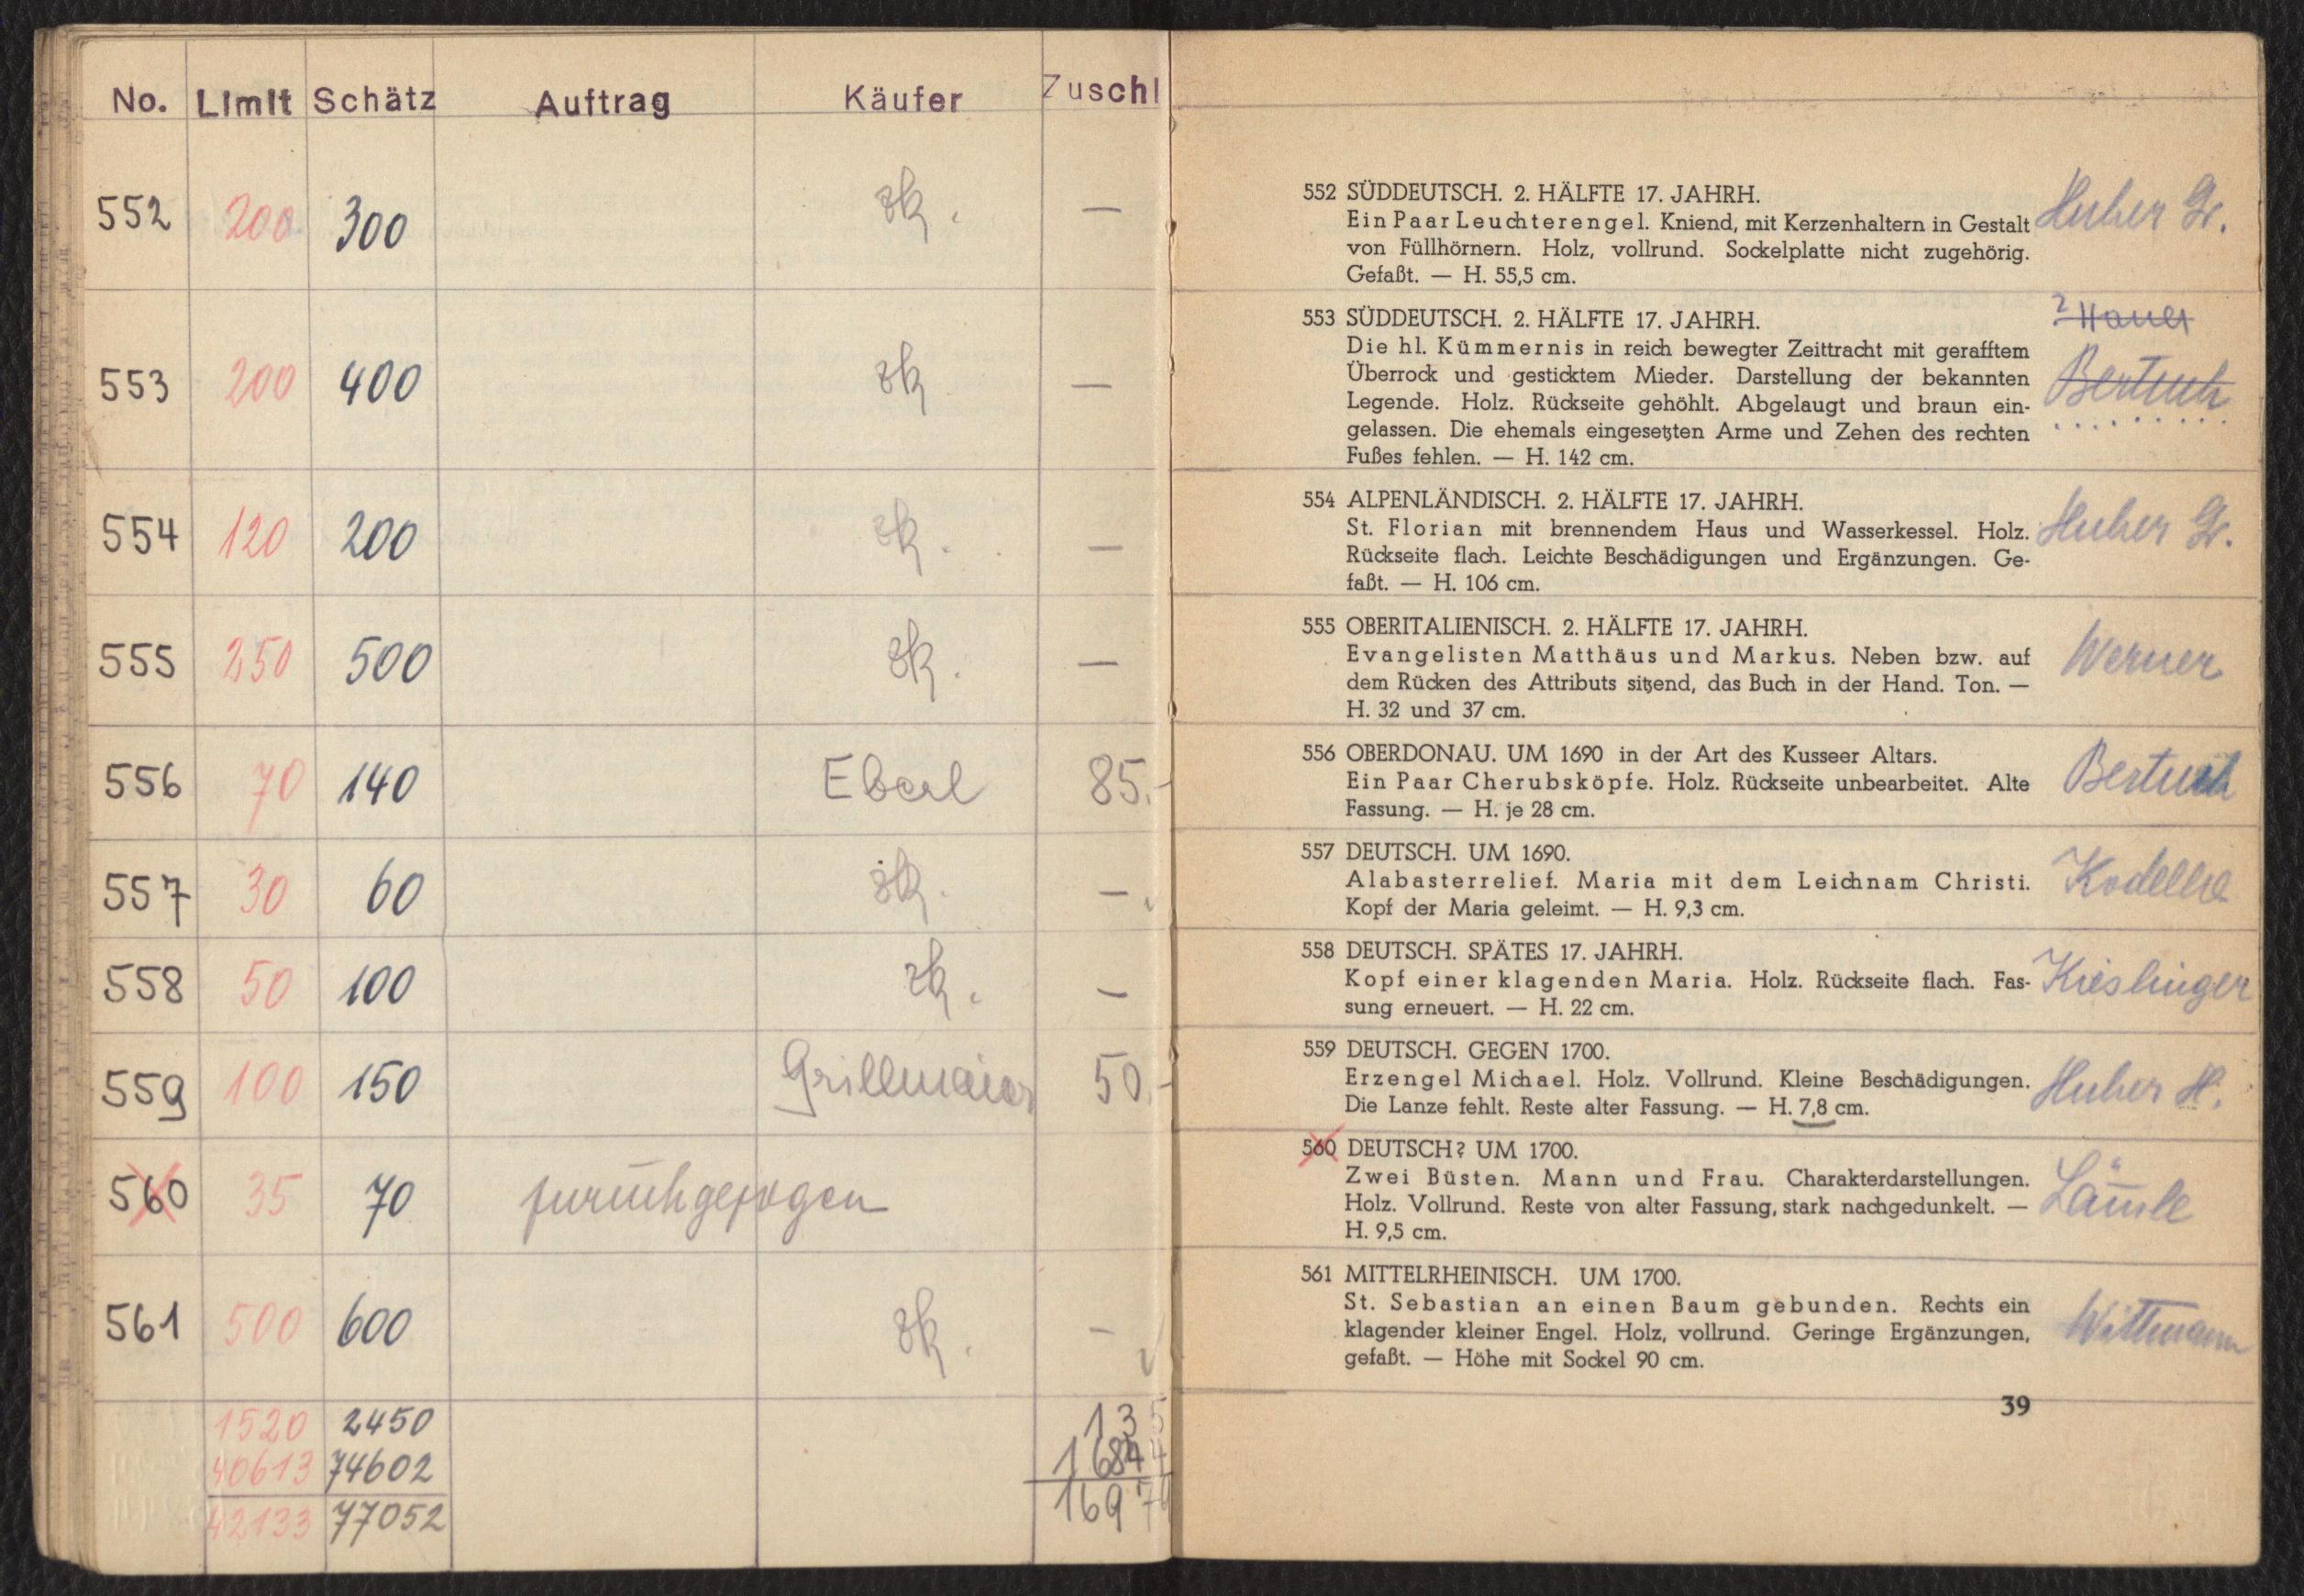 No. Limit Schätz Auftrag Käufer Zuschl
552 200 300 zk. —
553 200 400 zk —
554 120 200 zk. —
555 250 500 zk. —
556 70 140 Eberl 85.-
557 30 60 zk. —
558 50 100 zk. —
559 100 150 Grillmaier 50.-
560 35 70 zurückgezogen
561 500 600 zk. —
1520 2450 135
40613 74602
42133 77052
552 SÜDDEUTSCH. 2. HÄLFTE 17. JAHRH.
Ein Paar Leuchterengel. Kniend, mit Kerzenhaltern in Gestalt
von Füllhörnern. Holz, vollrund. Sockelplatte nicht zugehörig.
Gefaßt. — H. 55,5 cm.
Huber Gr.
553 SÜDDEUTSCH. 2. HÄLFTE 17. JAHRH.
Die hl. Kümmernis in reich bewegter Zeittracht mit gerafftem
Überrock und gesticktem Mieder. Darstellung der bekannten
Legende. Holz. Rückseite gehöhlt. Abgelaugt und braun ein-
gelassen. Die ehemals eingesetzten Arme und Zehen des rechten
Fußes fehlen. — H. 142 cm.
Bertuch
554 ALPENLÄNDISCH. 2. HÄLFTE 17. JAHRH.
St. Florian mit brennendem Haus und Wasserkessel. Holz.
Rückseite flach. Leichte Beschädigungen und Ergänzungen. Ge-
faßt. — H. 106 cm.
Huber Gr.
555 OBERITALIENISCH. 2. HÄLFTE 17. JAHRH.
Evangelisten Matthäus und Markus. Neben bzw. auf
dem Rücken des Attributs sitzend, das Buch in der Hand. Ton. —
H. 32 und 37 cm.
Werner
556 OBERDONAU. UM 1690 in der Art des Kusseer Altars.
Ein Paar Cherubsköpfe. Holz. Rückseite unbearbeitet. Alte
Fassung. — H. je 28 cm.
Bertuch
557 DEUTSCH. UM 1690.
Alabasterrelief. Maria mit dem Leichnam Christi.
Kopf der Maria geleimt. — H. 9,3 cm.
558 DEUTSCH. SPÄTES 17. JAHRH.
Kopf einer klagenden Maria. Holz. Rückseite flach. Fas-
sung erneuert. — H. 22 cm.
Kieslinger
559 DEUTSCH. GEGEN 1700.
Erzengel Michael. Holz. Vollrund. Kleine Beschädigungen.
Die Lanze fehlt. Reste alter Fassung. — H. 7,8 cm.
Huber H.
560 DEUTSCH? UM 1700.
Zwei Büsten. Mann und Frau. Charakterdarstellungen.
Holz. Vollrund. Reste von alter Fassung, stark nachgedunkelt. —
H. 9,5 cm.
Lämle
561 MITTELRHEINISCH. UM 1700.
St. Sebastian an einen Baum gebunden. Rechts ein
klagender kleiner Engel. Holz, vollrund. Geringe Ergänzungen,
gefaßt. — Höhe mit Sockel 90 cm.
Wittmann
39